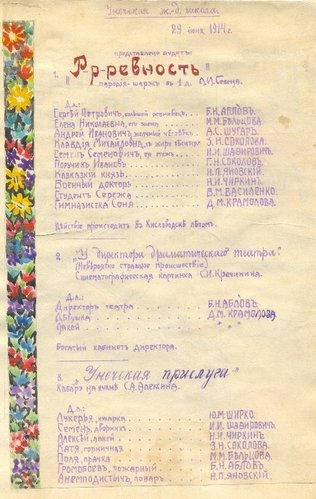 Унечская ж.-д. школа.
29 июня 1914 г.
представлено будетъ:
1. "Рр-ревность"
пародія-шаржъ въ 1 д.
Д.л.:
Сергѣй Петровичъ, Б.Н. Абловъ.
Елена Николаевна, его жена М.М. Бѣльцова
Андрей Ивановичъ, А.С. Шугаръ.
Клавдія Михайловна, З.Н. Соколова.
Семенъ Семеновичъ, И.И. Шафировичъ.
Поручикъ Ивановъ Г.Н. Соколовъ.
Кавказскій князь Н.П. Яновскій
Военный докторъ Н.И. Чиркинъ
Студентъ Сережа В.М. Василенко.
Гимназистка Соня Д.М. Крамолова.
Дѣйствіе происходитъ въ Кисловодскѣ лѣтомъ.
2. "У директора драматическаго театра"
(Невѣроятно страшное происшествіе)
Синематографическая картинка С.И.
Д.л.:
Директоръ театра Б.Н. Абловъ.
Дѣвушка Д.М. Крамолова.
Лакей
Богатый кабинетъ директора.
3. "Унечская прислуга"
Кабарэ на кухнѣ С.А. Алекина.
Д.л.:
Лукерья, кухарка Ю.М. Ширко.
Семенъ, дворникъ И.И. Шафировичъ.
Алексѣй, лакей Н.И. Чиркинъ
Катя, горничная З.Н. Соколова.
Поля, прачка М.М. Бѣльцова
Громобоевъ, пожарный Б.Н. Абловъ
Анемподистычъ, поваръ Н.П. Яновскій